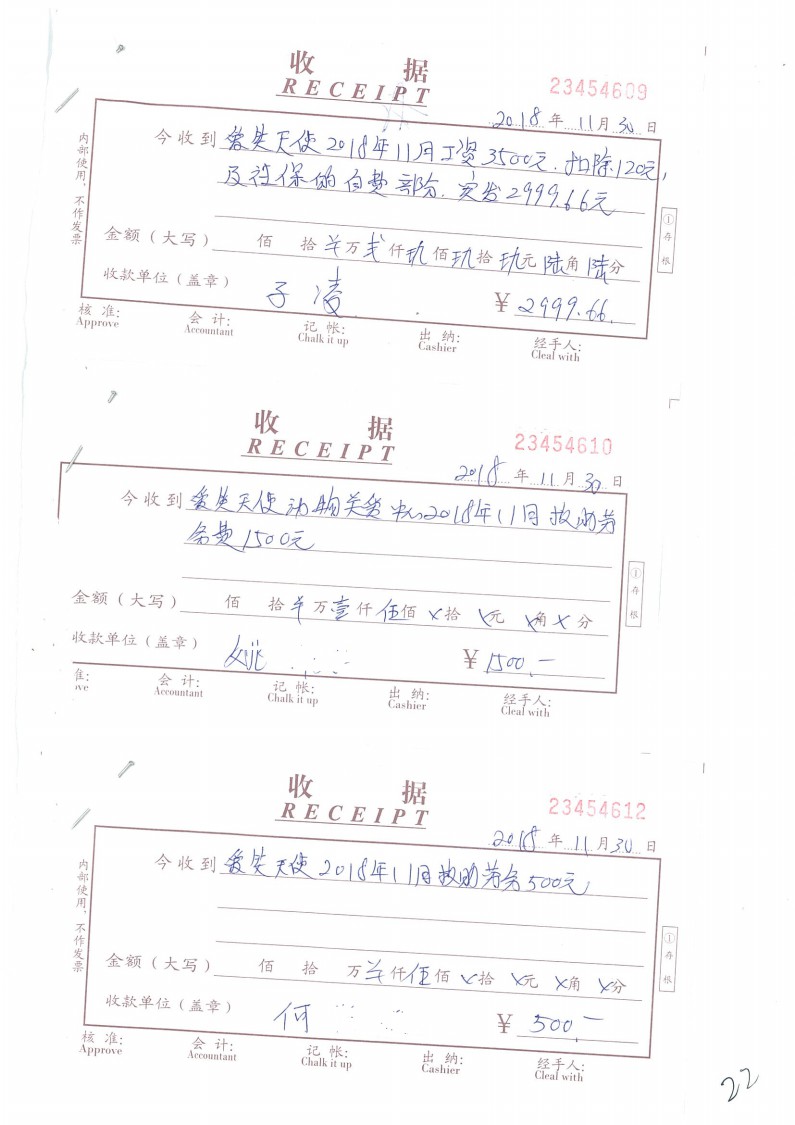 收 据
RECEIPT
23454609
2018年11月30日
今收到 爱笑天使2018年11月工资3500元.扣除120元,
及社保的自费部分.实发2999.66元
金额(大写) 佰 拾 万 贰仟玖佰玖拾玖元陆角陆分
收款单位(盖章) 子凌 ¥ 2999.66
核准: 会计: 记帐: 出纳: 经手人:
Approve Accountant Chalk it up Cashier Cleal with
内部使用,不作发票
①存根
收 据
RECEIPT
23454610
2018年11月30日
今收到 爱笑天使动物关爱中心2018年11月救助劳
务费1500元
金额(大写) 佰 拾 万壹仟伍佰x拾x元x角x分
收款单位(盖章) 姚 ¥ 1500.—
准: 会计: 记帐: 出纳: 经手人:
ove Accountant Chalk it up Cashier Cleal with
①存根
收 据
RECEIPT
23454612
2018年11月30日
今收到 爱笑天使2018年11月救助劳务500元
金额(大写) 佰 拾 万 仟伍佰x拾x元x角x分
收款单位(盖章) 何 ¥ 500.—
核准: 会计: 记帐: 出纳: 经手人:
Approve Accountant Chalk it up Cashier Cleal with
内部使用,不作发票
①存根
22